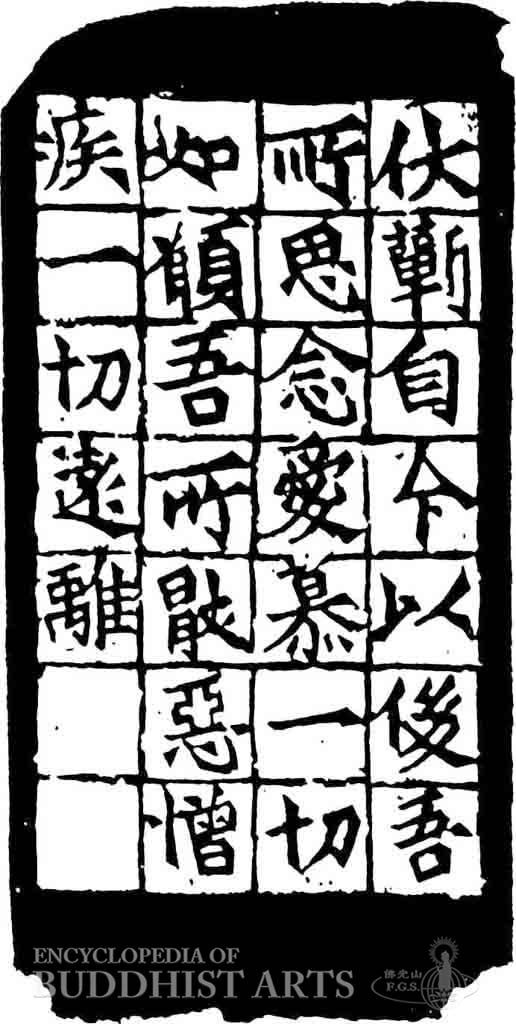 伏蘄自今以後吾
所思念愛慕一切
如願吾所猒惡憎
疾一切遠離
ENCYCLOPEDIA OF
BUDDHIST ARTS
佛光山
F.G.S.